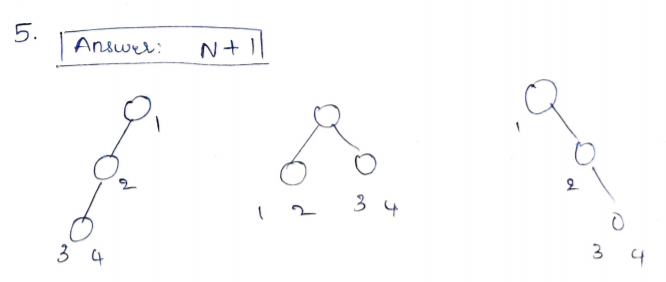 5.
Answer: N+1
1
2
3 4
1 2 3 4
1
2
3 4